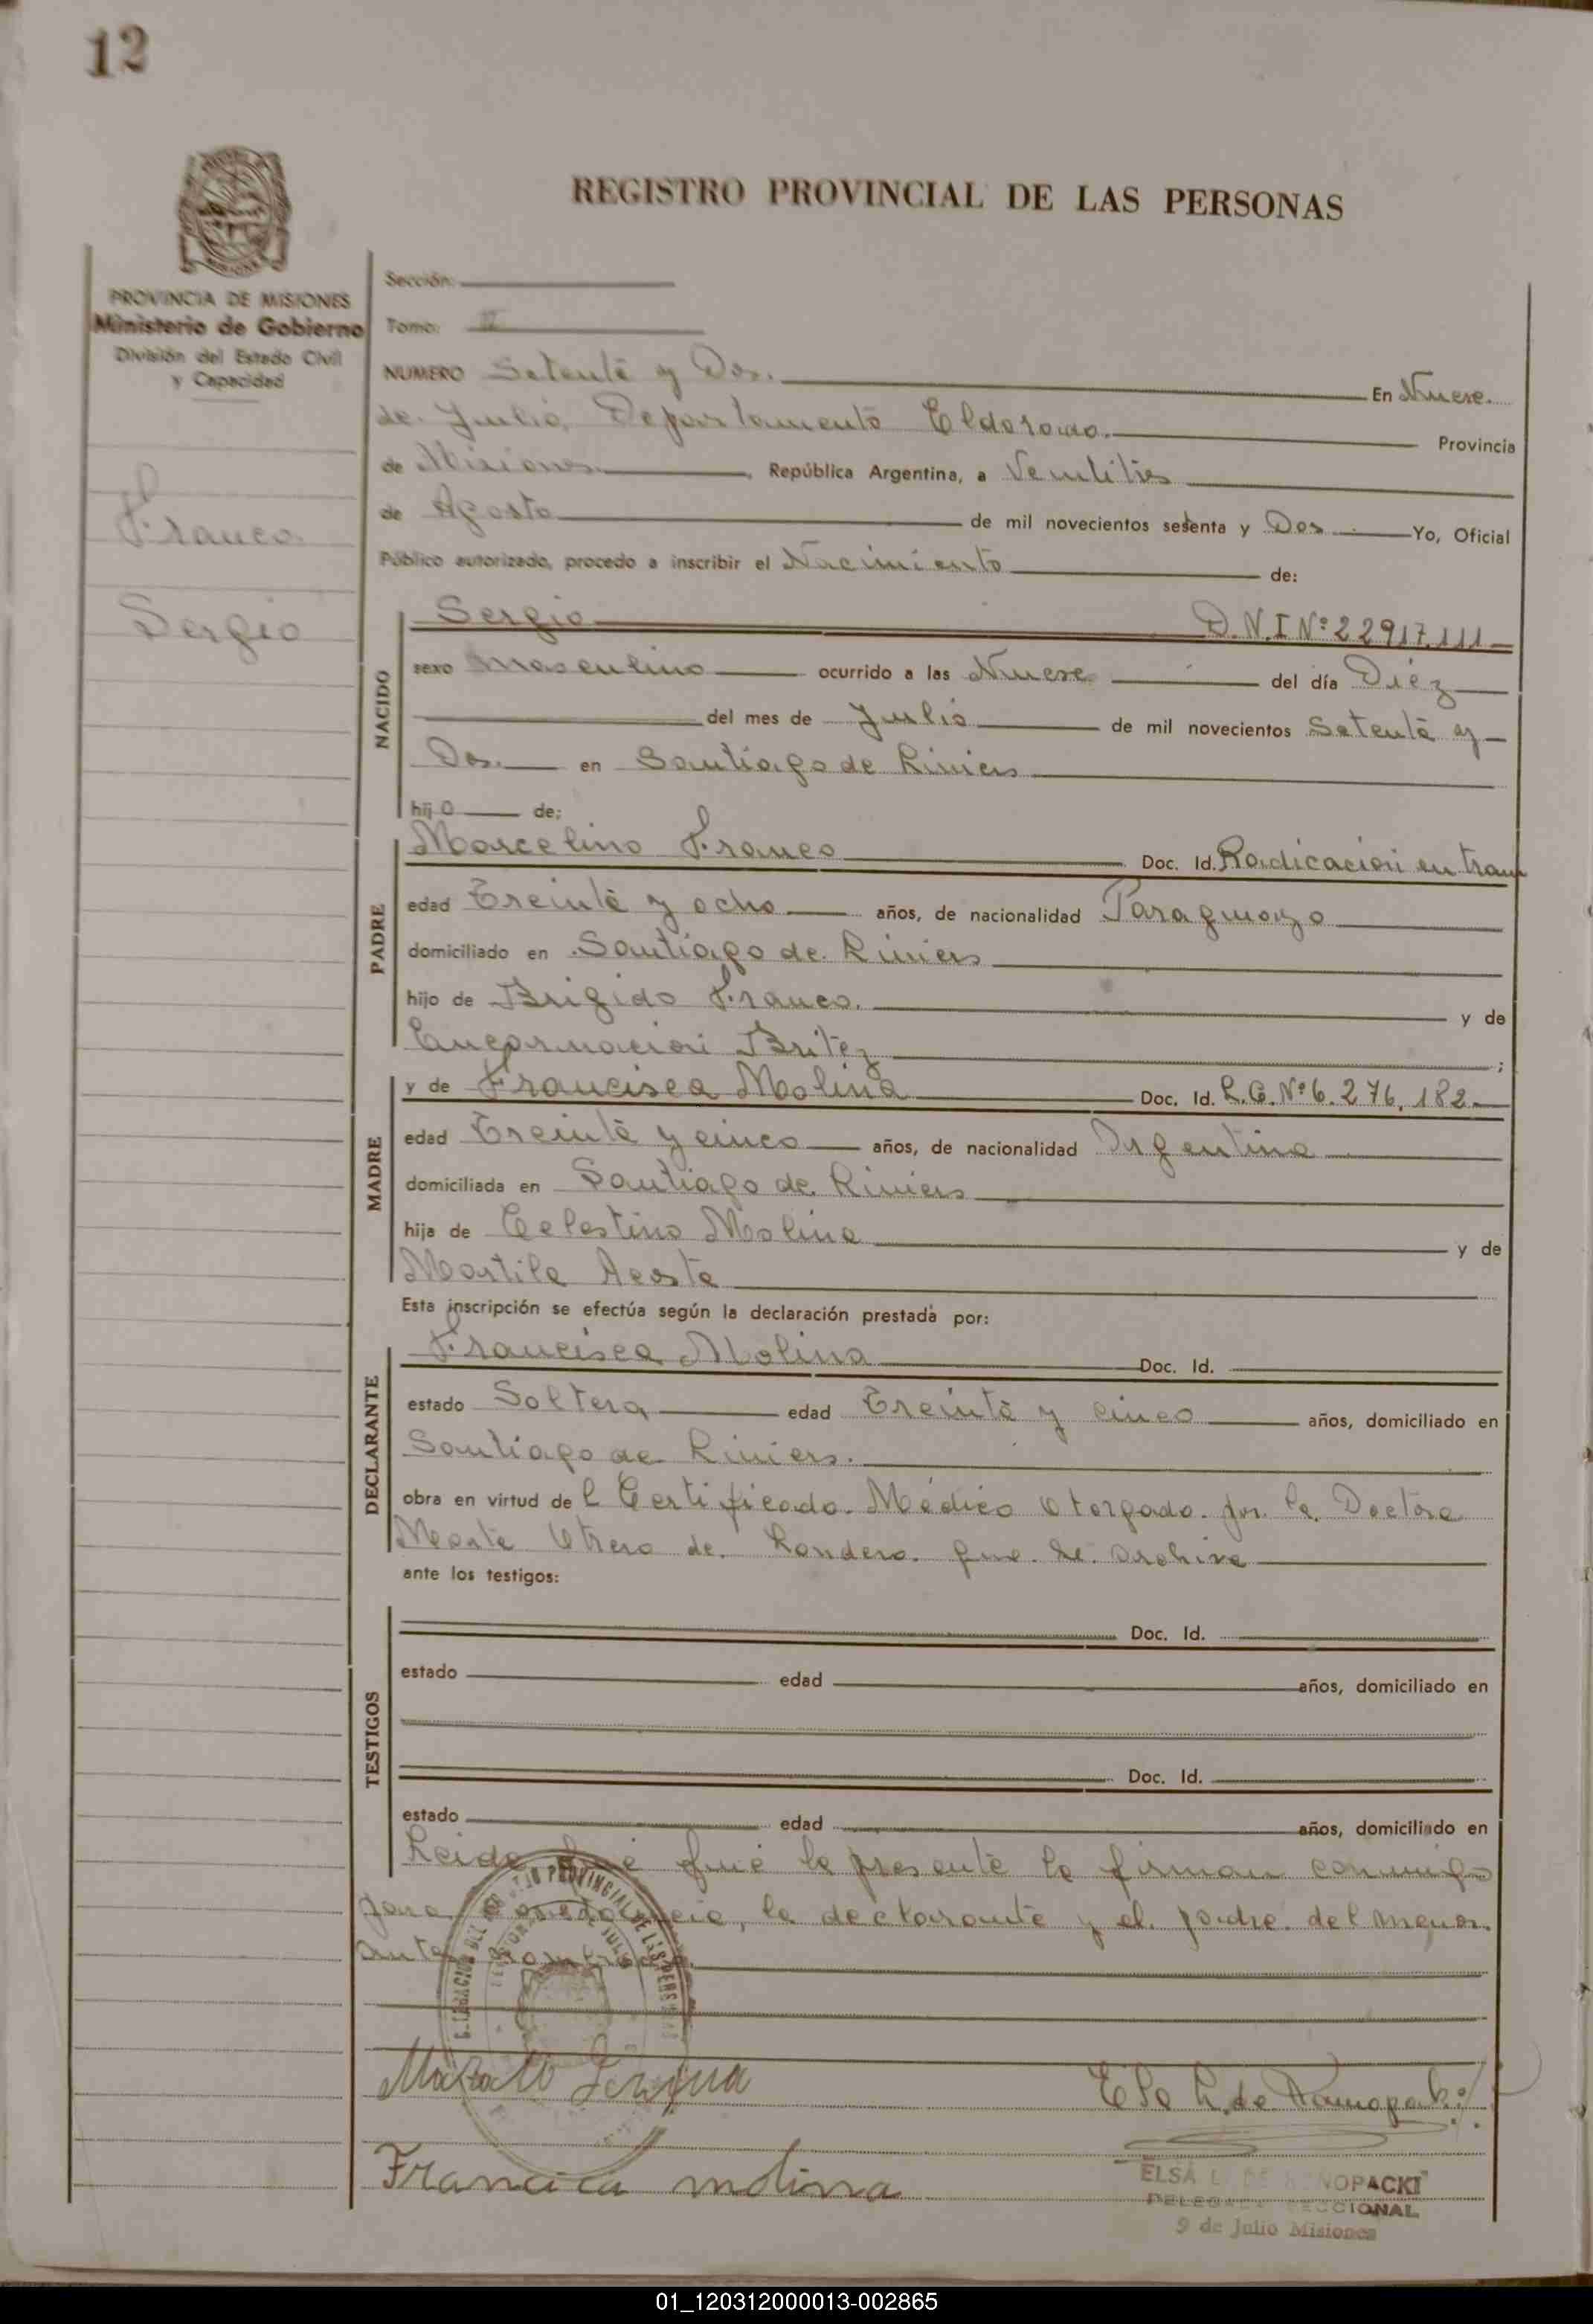 12
REGISTRO PROVINCIAL DE LAS PERSONAS
PROVINCIA DE MISIONES
Ministerio de Gobierno
División del Estado Civil
y Capacidad
Franco
Sergio
Sección:
Tomo: II
NUMERO Setenta y Dos. En Nueve
de Julio, Departamento Eldorado. Provincia
de Misiones, República Argentina, a Ventitres
de Agosto de mil novecientos setenta y Dos Yo, Oficial
Público autorizado, procedo a inscribir el Nacimiento de:
NACIDO
Sergio D.N.I Nº 22917.111
sexo masculino ocurrido a las Nueve del día Diéz
del mes de Julio de mil novecientos Setenta y
Dos. en Santiago de Liniers
hijo de:
PADRE
Marcelino Franco Doc. Id. Radicación en tram
edad Treinta y ocho años, de nacionalidad Paraguayo
domiciliado en Santiago de Liniers
hijo de Brigido Franco. y de
Encarnación Britez ;
MADRE
y de Francisca Molina Doc. Id. L.C. Nº 6.276.182
edad Treinta y cinco años, de nacionalidad Argentina
domiciliada en Santiago de Liniers
hija de Celestino Molina y de
Martila Acosta
Esta inscripción se efectúa según la declaración prestada por:
DECLARANTE
Francisca Molina Doc. Id.
estado Soltera edad Treinta y cinco años, domiciliado en
Santiago de Liniers.
obra en virtud del Certificado Médico Otorgado por la Doctora
Marta Utrera de Landero que se archiva
ante los testigos:
TESTIGOS
Doc. Id.
estado edad años, domiciliado en
Doc. Id.
estado edad años, domiciliado en
Leida que fué la presente la firman conmigo
para constancia, la declarante y el padre del menor
antes nombrado.
Elsa L. de
Francica molina
ELSA L. DE NOPACKI
DELEGADA SECCIONAL
9 de Julio Misiones
01_120312000013-002865